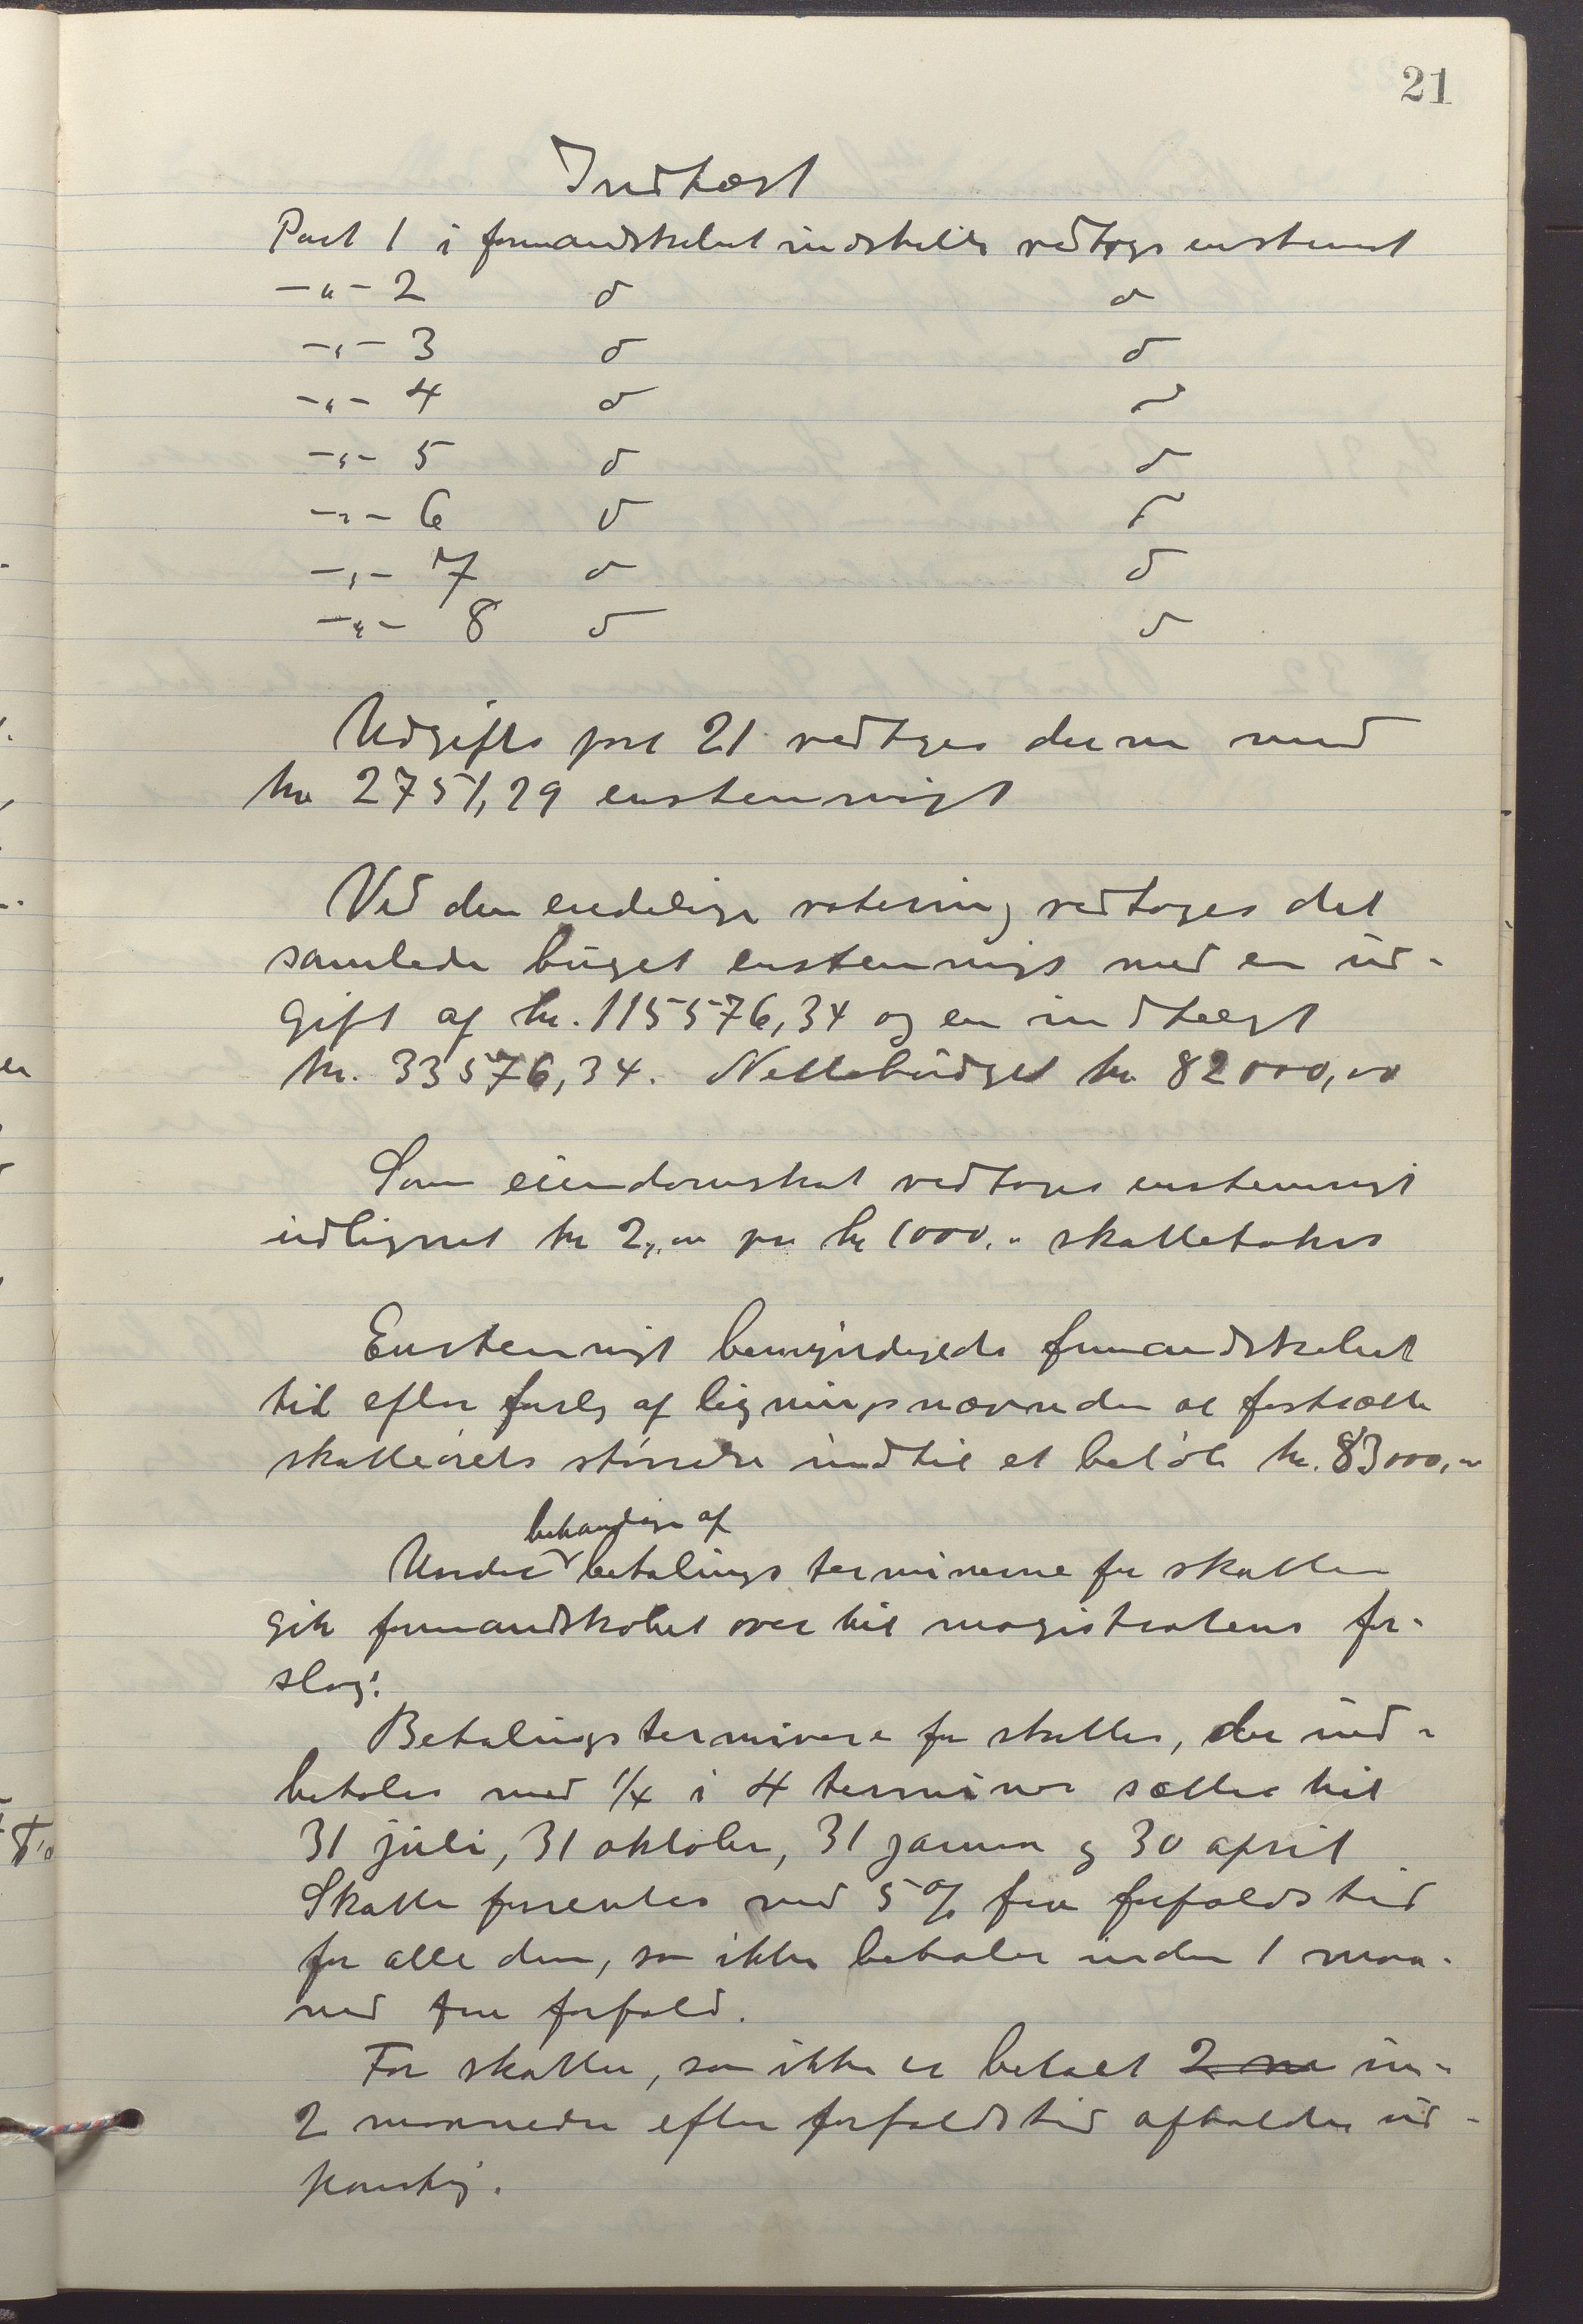 21
Indtægt
Post 1 i formandskabet indstilles vedtoges enstemt
-"- 2 d d
-"- 3 d d
-"- 4 d d
-"- 5 d d
-"- 6 d d
-"- 7 d d
-"- 8 d d
Udgifts post 21 vedtoges med
kr 2751,29 enstemmigt
Ved den endelige votering vedtoges det
samlede buget enstemmigt med en ud-
gift af kr. 115576,34 og en indtægt
kr. 33576,34. Nettobudget kr 82000,00
Som eiendomskat vedtoges enstemmigt
udlignet kr 2,00 pr kr 1000,- skattetakst
Enstemmigt bemyndigedes formandskabet
til efter forslg af ligningsnævnden at fastsætte
skatteørets størrelse indtil et beløb kr. 83000,-
behandlign af
Under betalings terminerne for skatten
gik formandskabet over til magistratens for-
slag:
Betalingsterminere for skatter, der ind-
betales med 1/4 i 4 terminer sættes til
31 juli, 31 oktober, 31 januar og 30 april
Skatte forrentes med 5% fra forfaldstid
for alle dem, som ikke betaler inden 1 maa-
ned fra forfald.
For skatter, som ikke er betalt 2 m in-
2 maaneder efter forfaldstid afholdes ud-
pantnig.